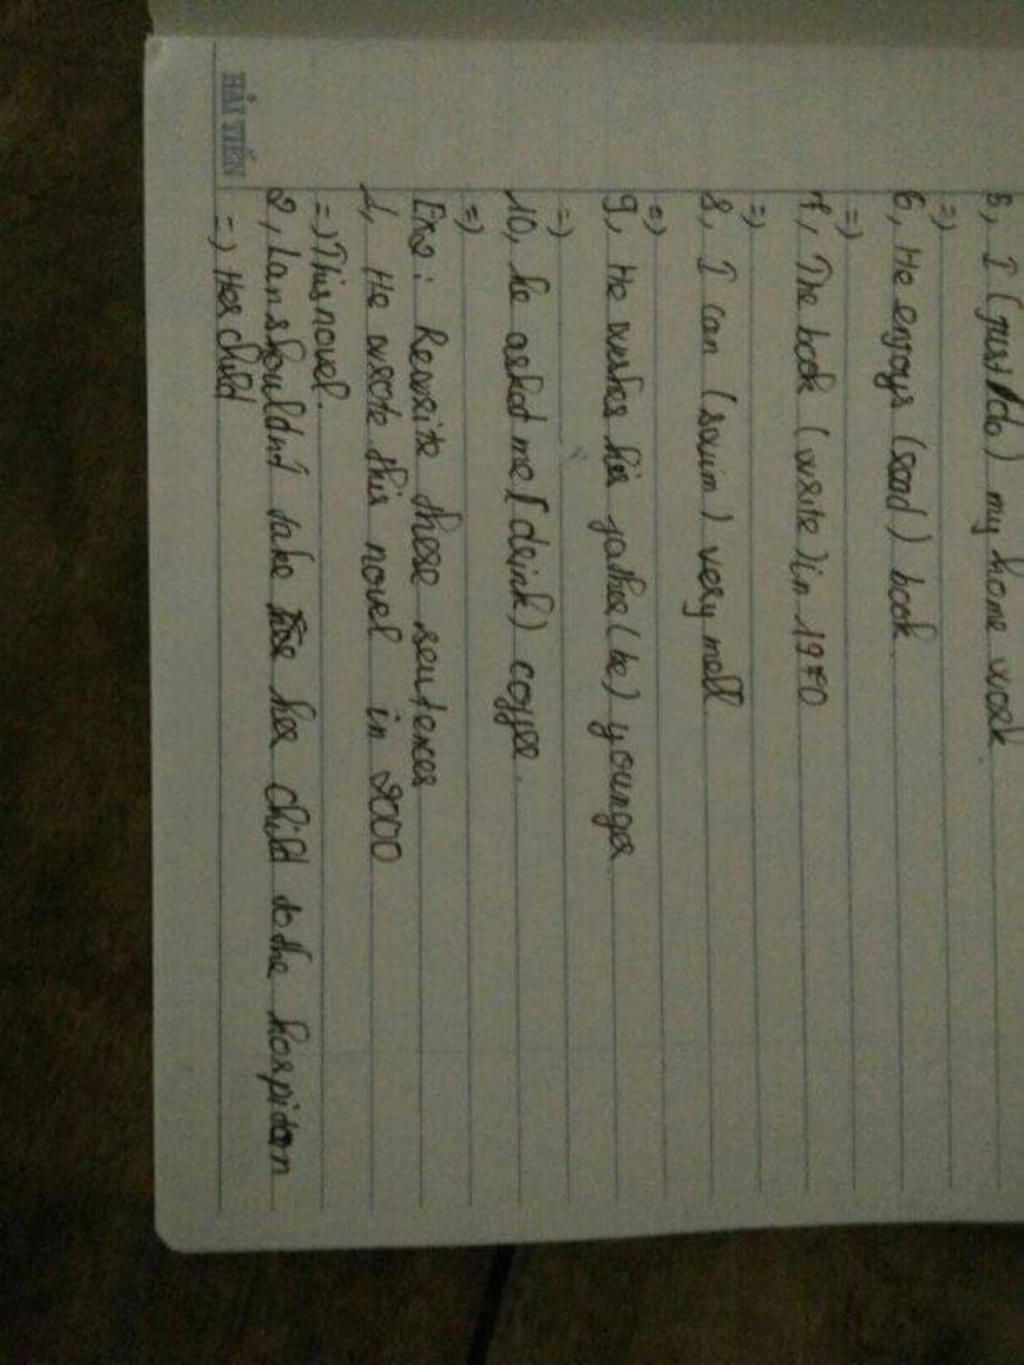 5, I (just / do) my home work.
=)
6, He enjoys (read) book
=)
7, The book (write) in 1970
=)
8, I can (swim) very well
=)
9, He wishes his father (be) younger
=)
10, he asked me [drink) coffee.
=)
Ex2: Rewrite these sentences
1, He wrote this novel in 2000
=) This novel.
2, Lan shouldn't take her child to the hospitam
=) Her child
HẢI TIẾN